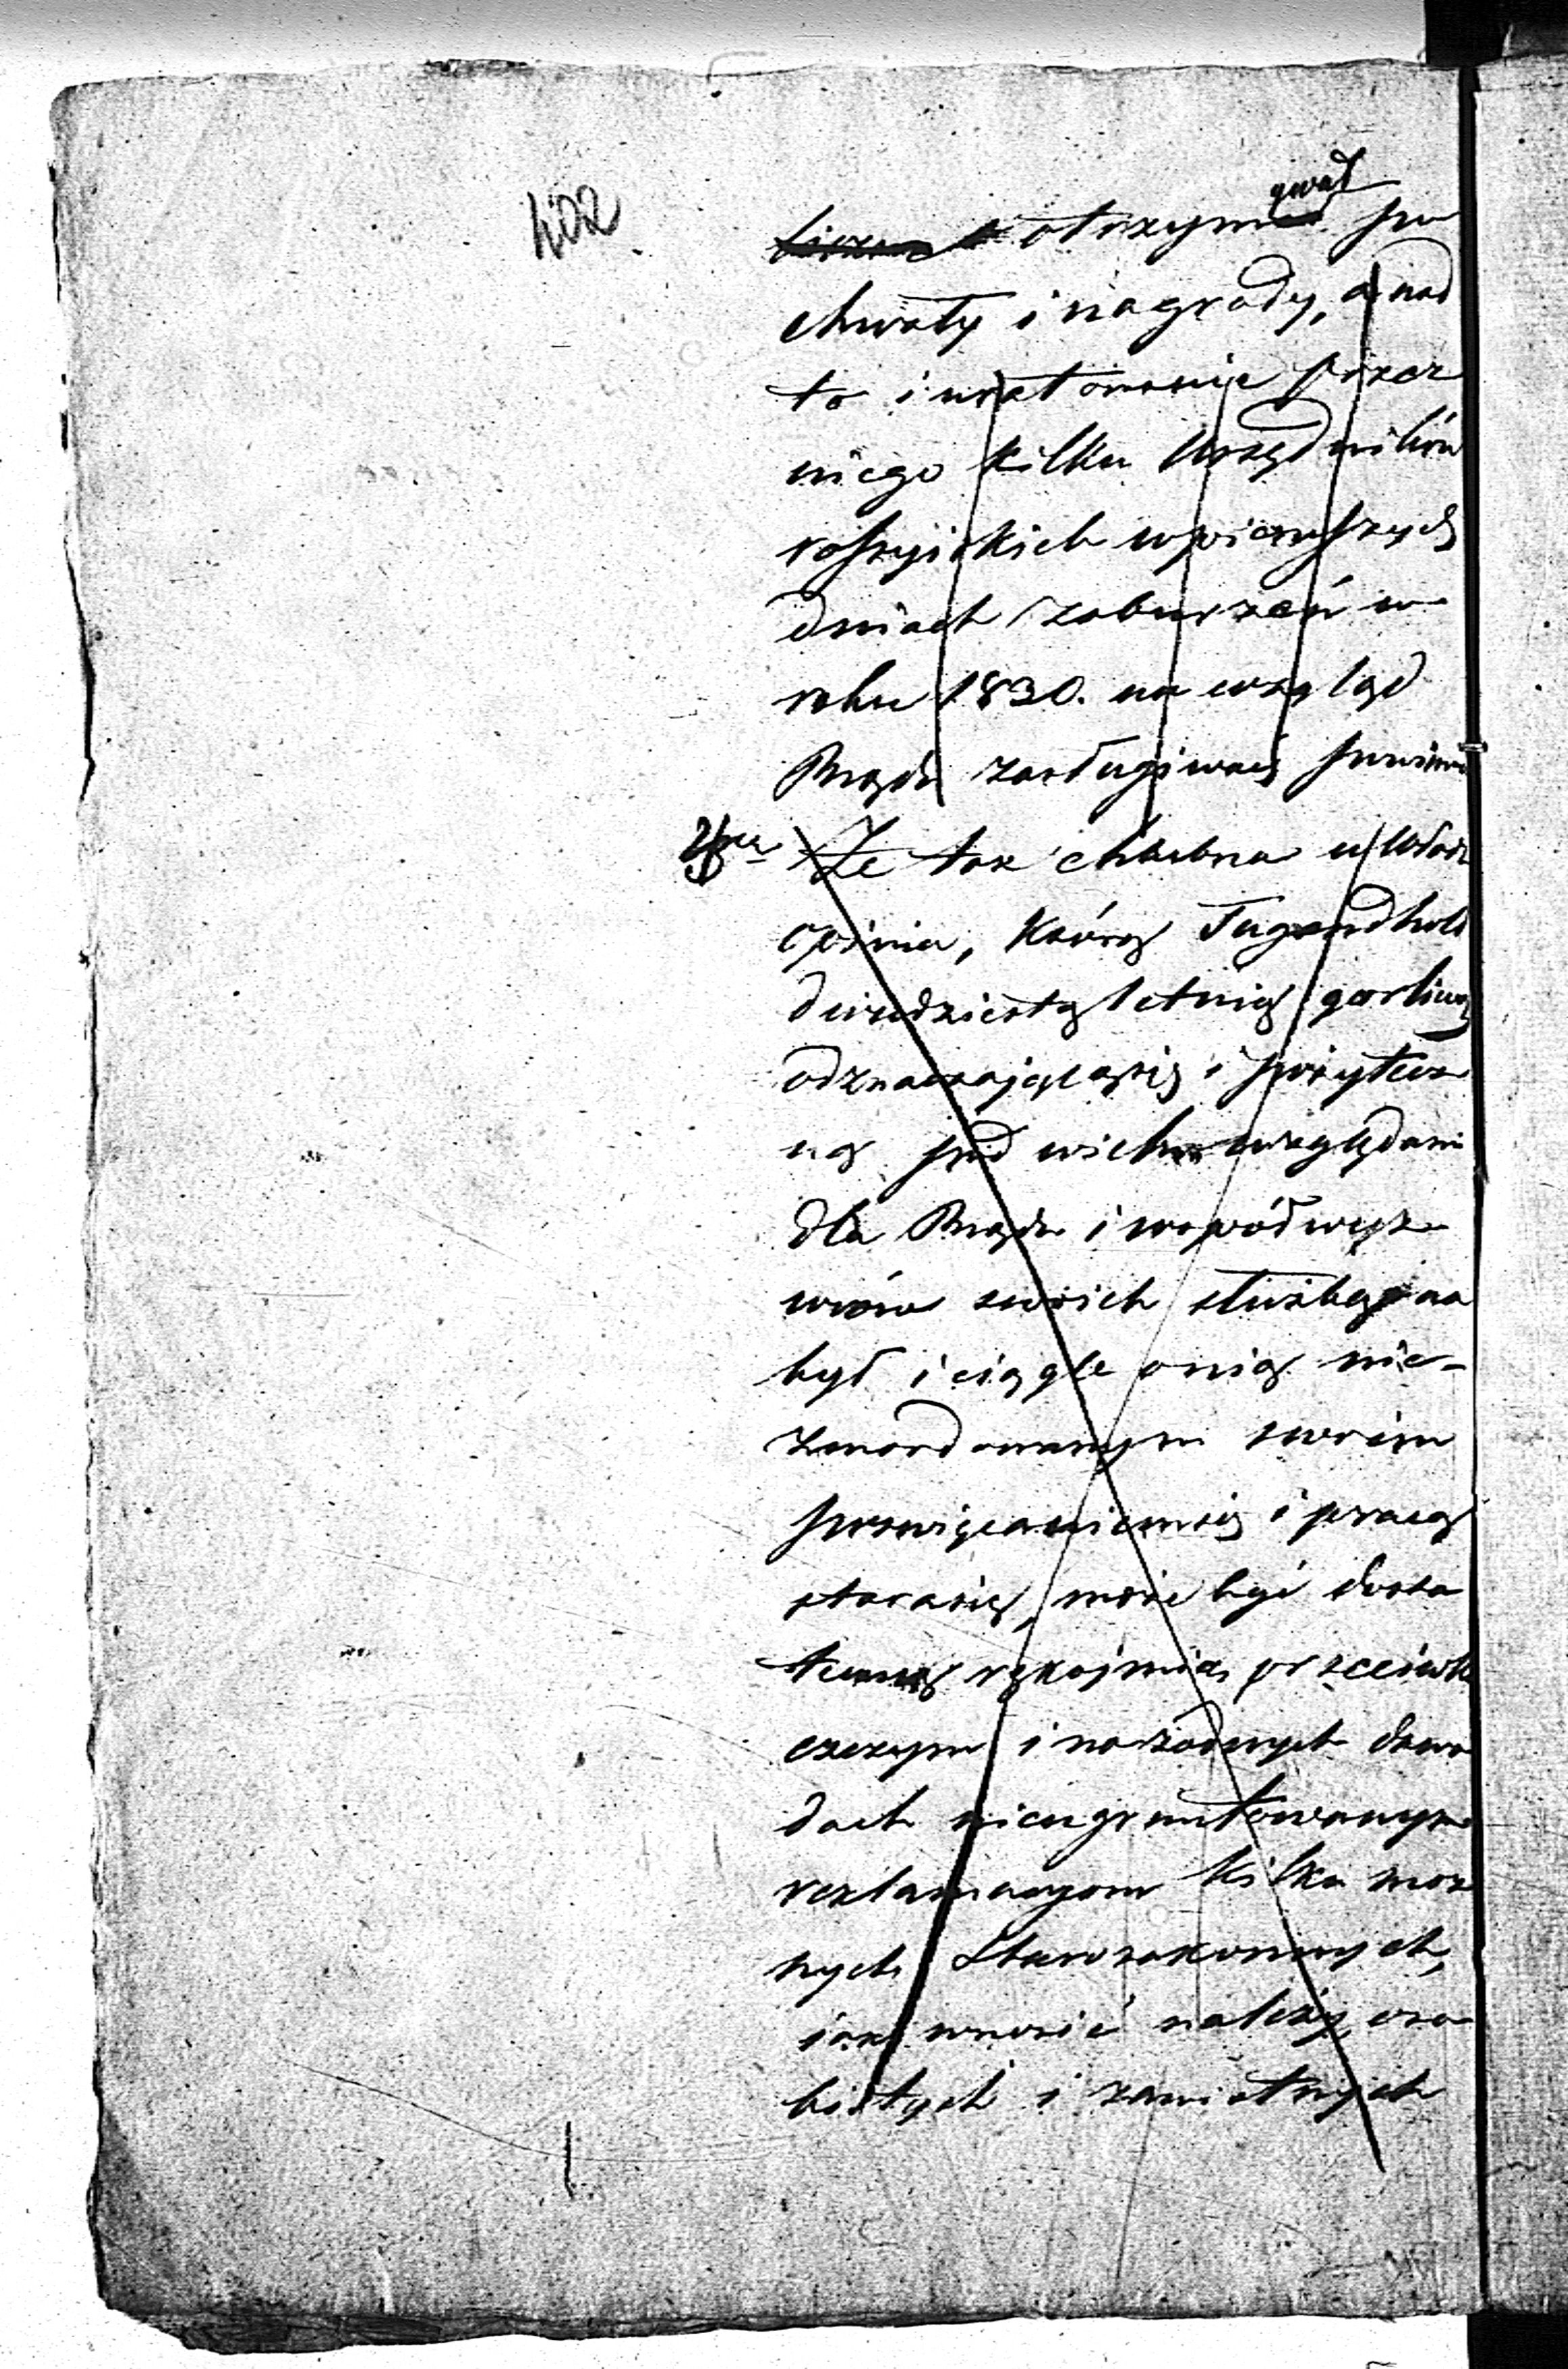 402
otrzymywał po
chwały i nagrody, a nad
to i uratowanie przez
niego kilku Urzędników
rossyiskich w pierwszych
dniach zaburzeń w
roku 1830. na wzgląd
Rządu zasługiwać powinno
2re Że tak chlubna u Władz
opinia, którą Tugendhold
dwudziestoletnią gorliwą
odznaczającą się i pożytecz
ną pod wielu względami
dla Rządu i współwyzn
wców swoich służbą na
był i ciągle onią nie-
zmordowanym swoim
poswięcaniem się i pracą
stara się, może być dosta
teczną rękojmią przeciwko
czczym i na żadnych dowo
dach nieugruntowanym
reklamacyom kilku moż
nych Starozakonnych,
jak wnosić należy, oso
bistych i zawistnych